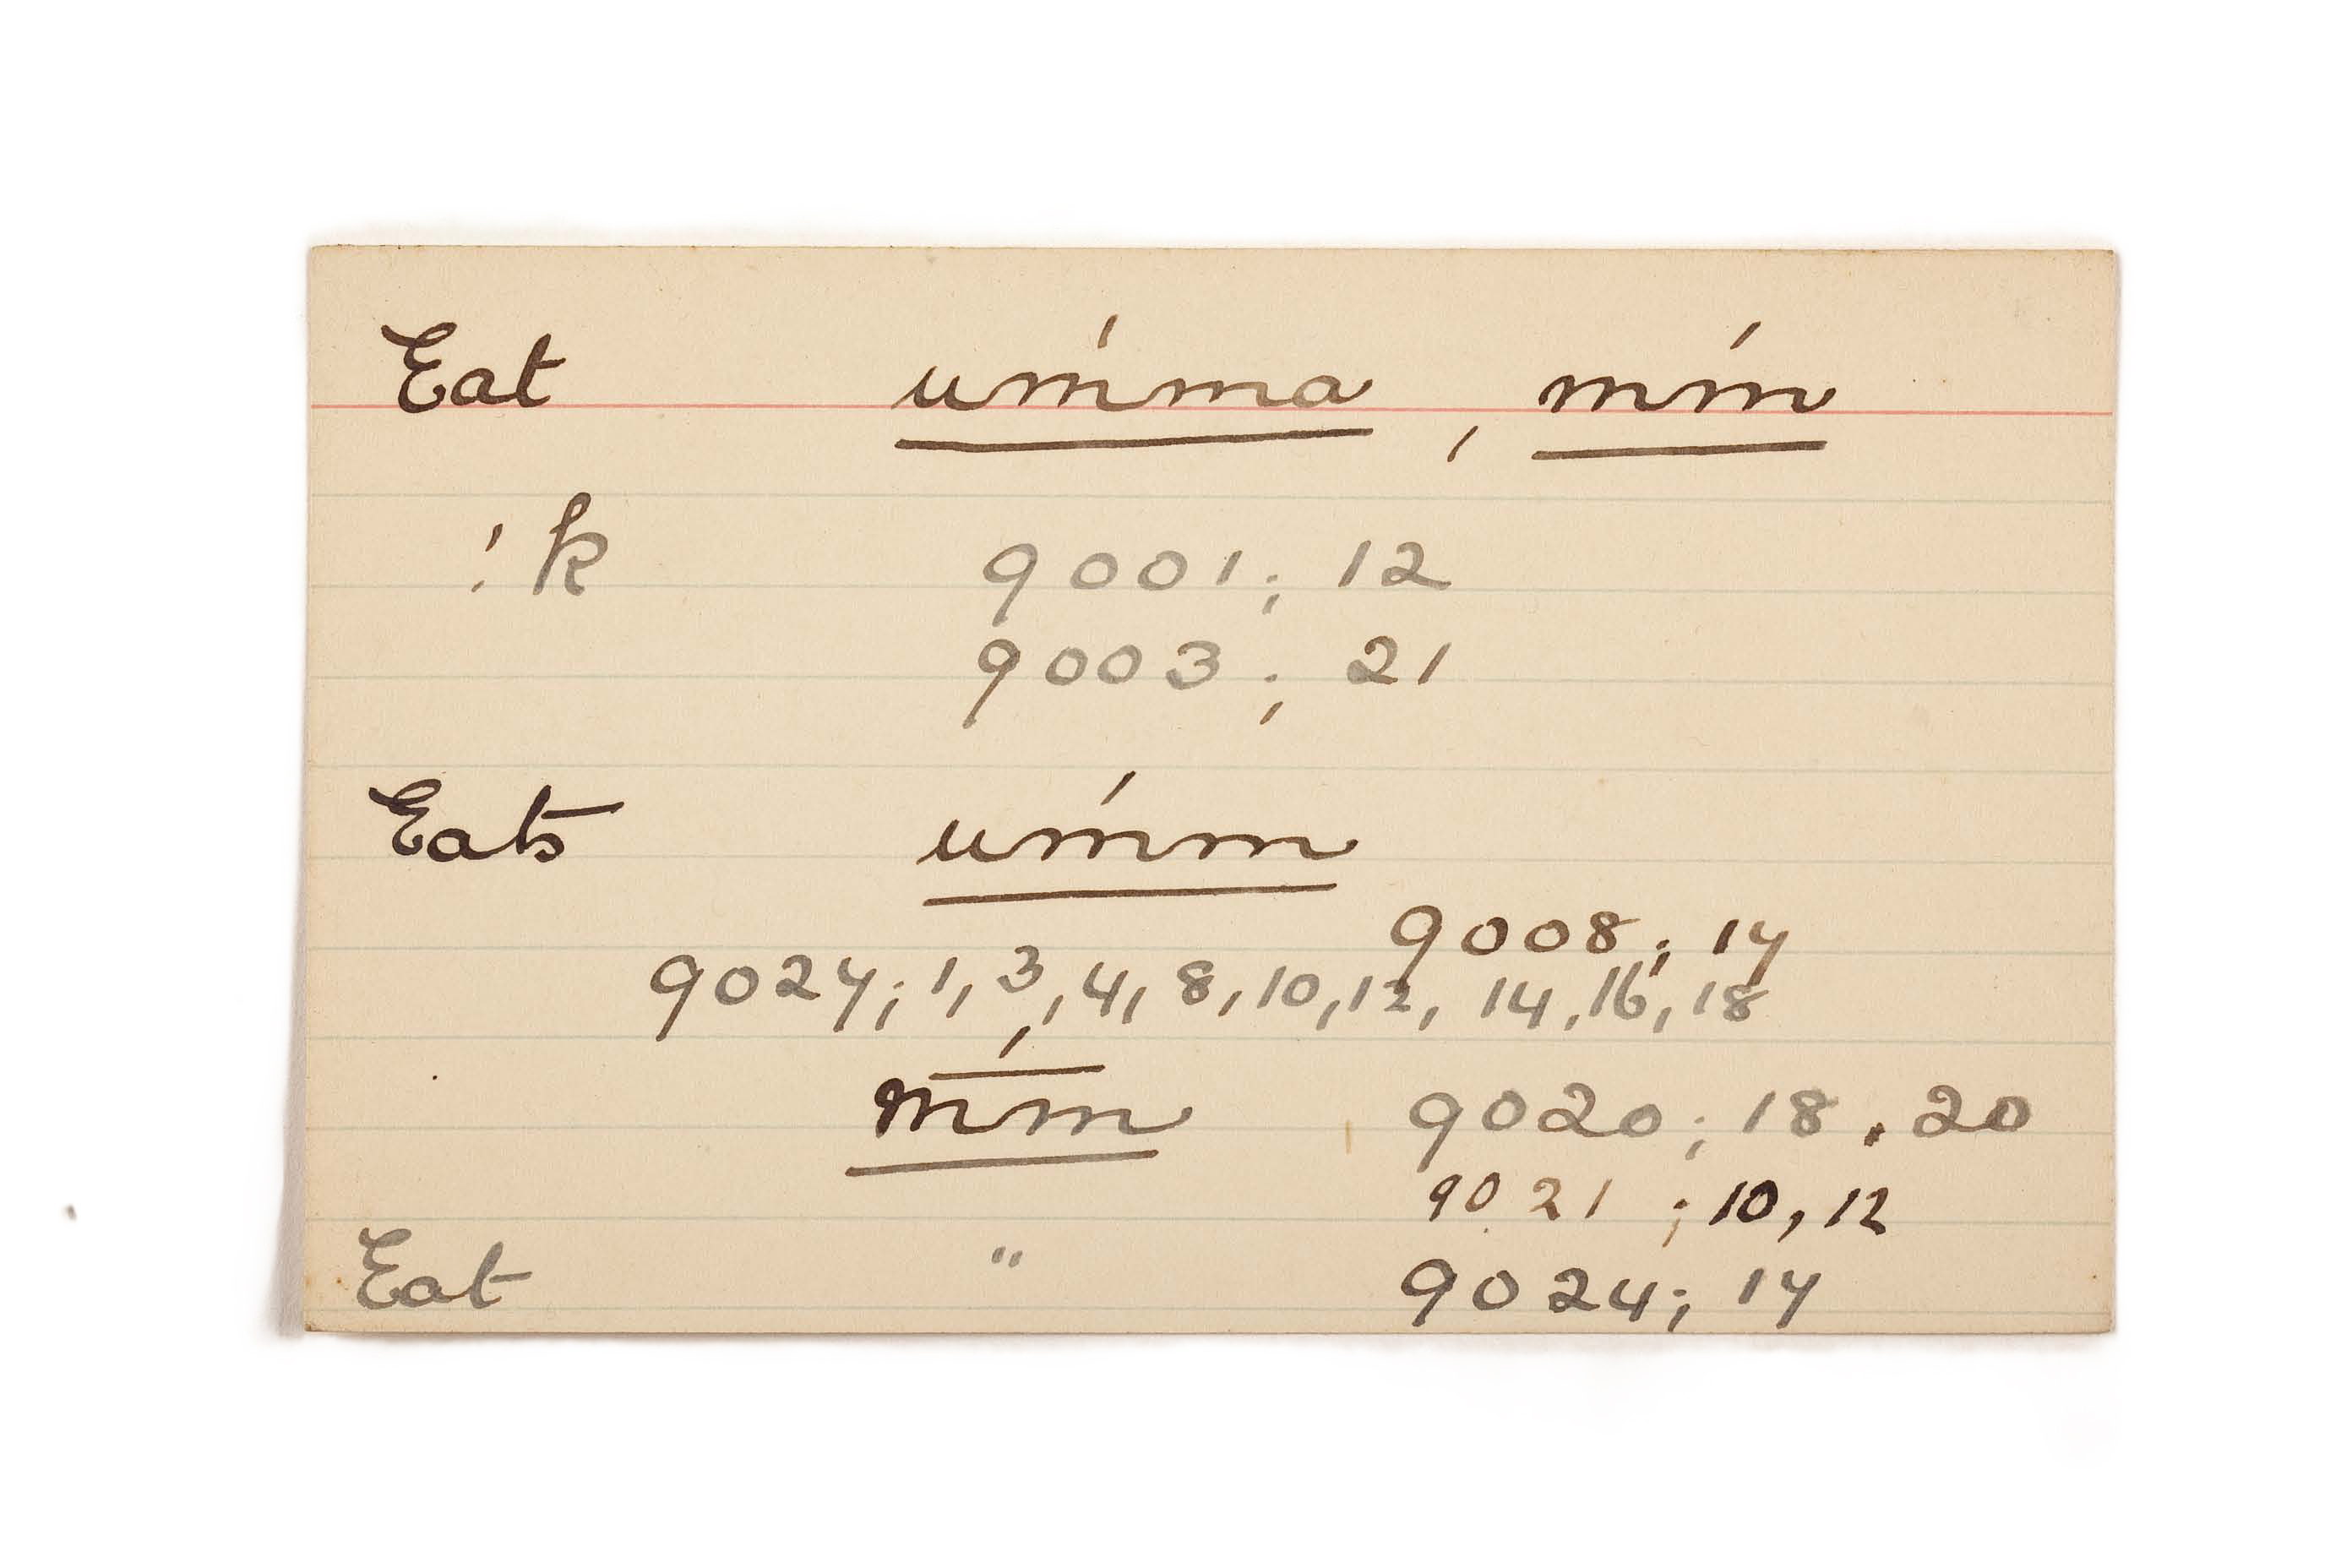 Eat um'ma, m'm
!k 9001; 12
9003; 21
Eats um'm
9008; 17
9027; 1, 3, 4, 8, 10, 12, 14, 16, 18
m̄'m 9020; 18, 20
9021; 10, 12
Eat " 9024; 17